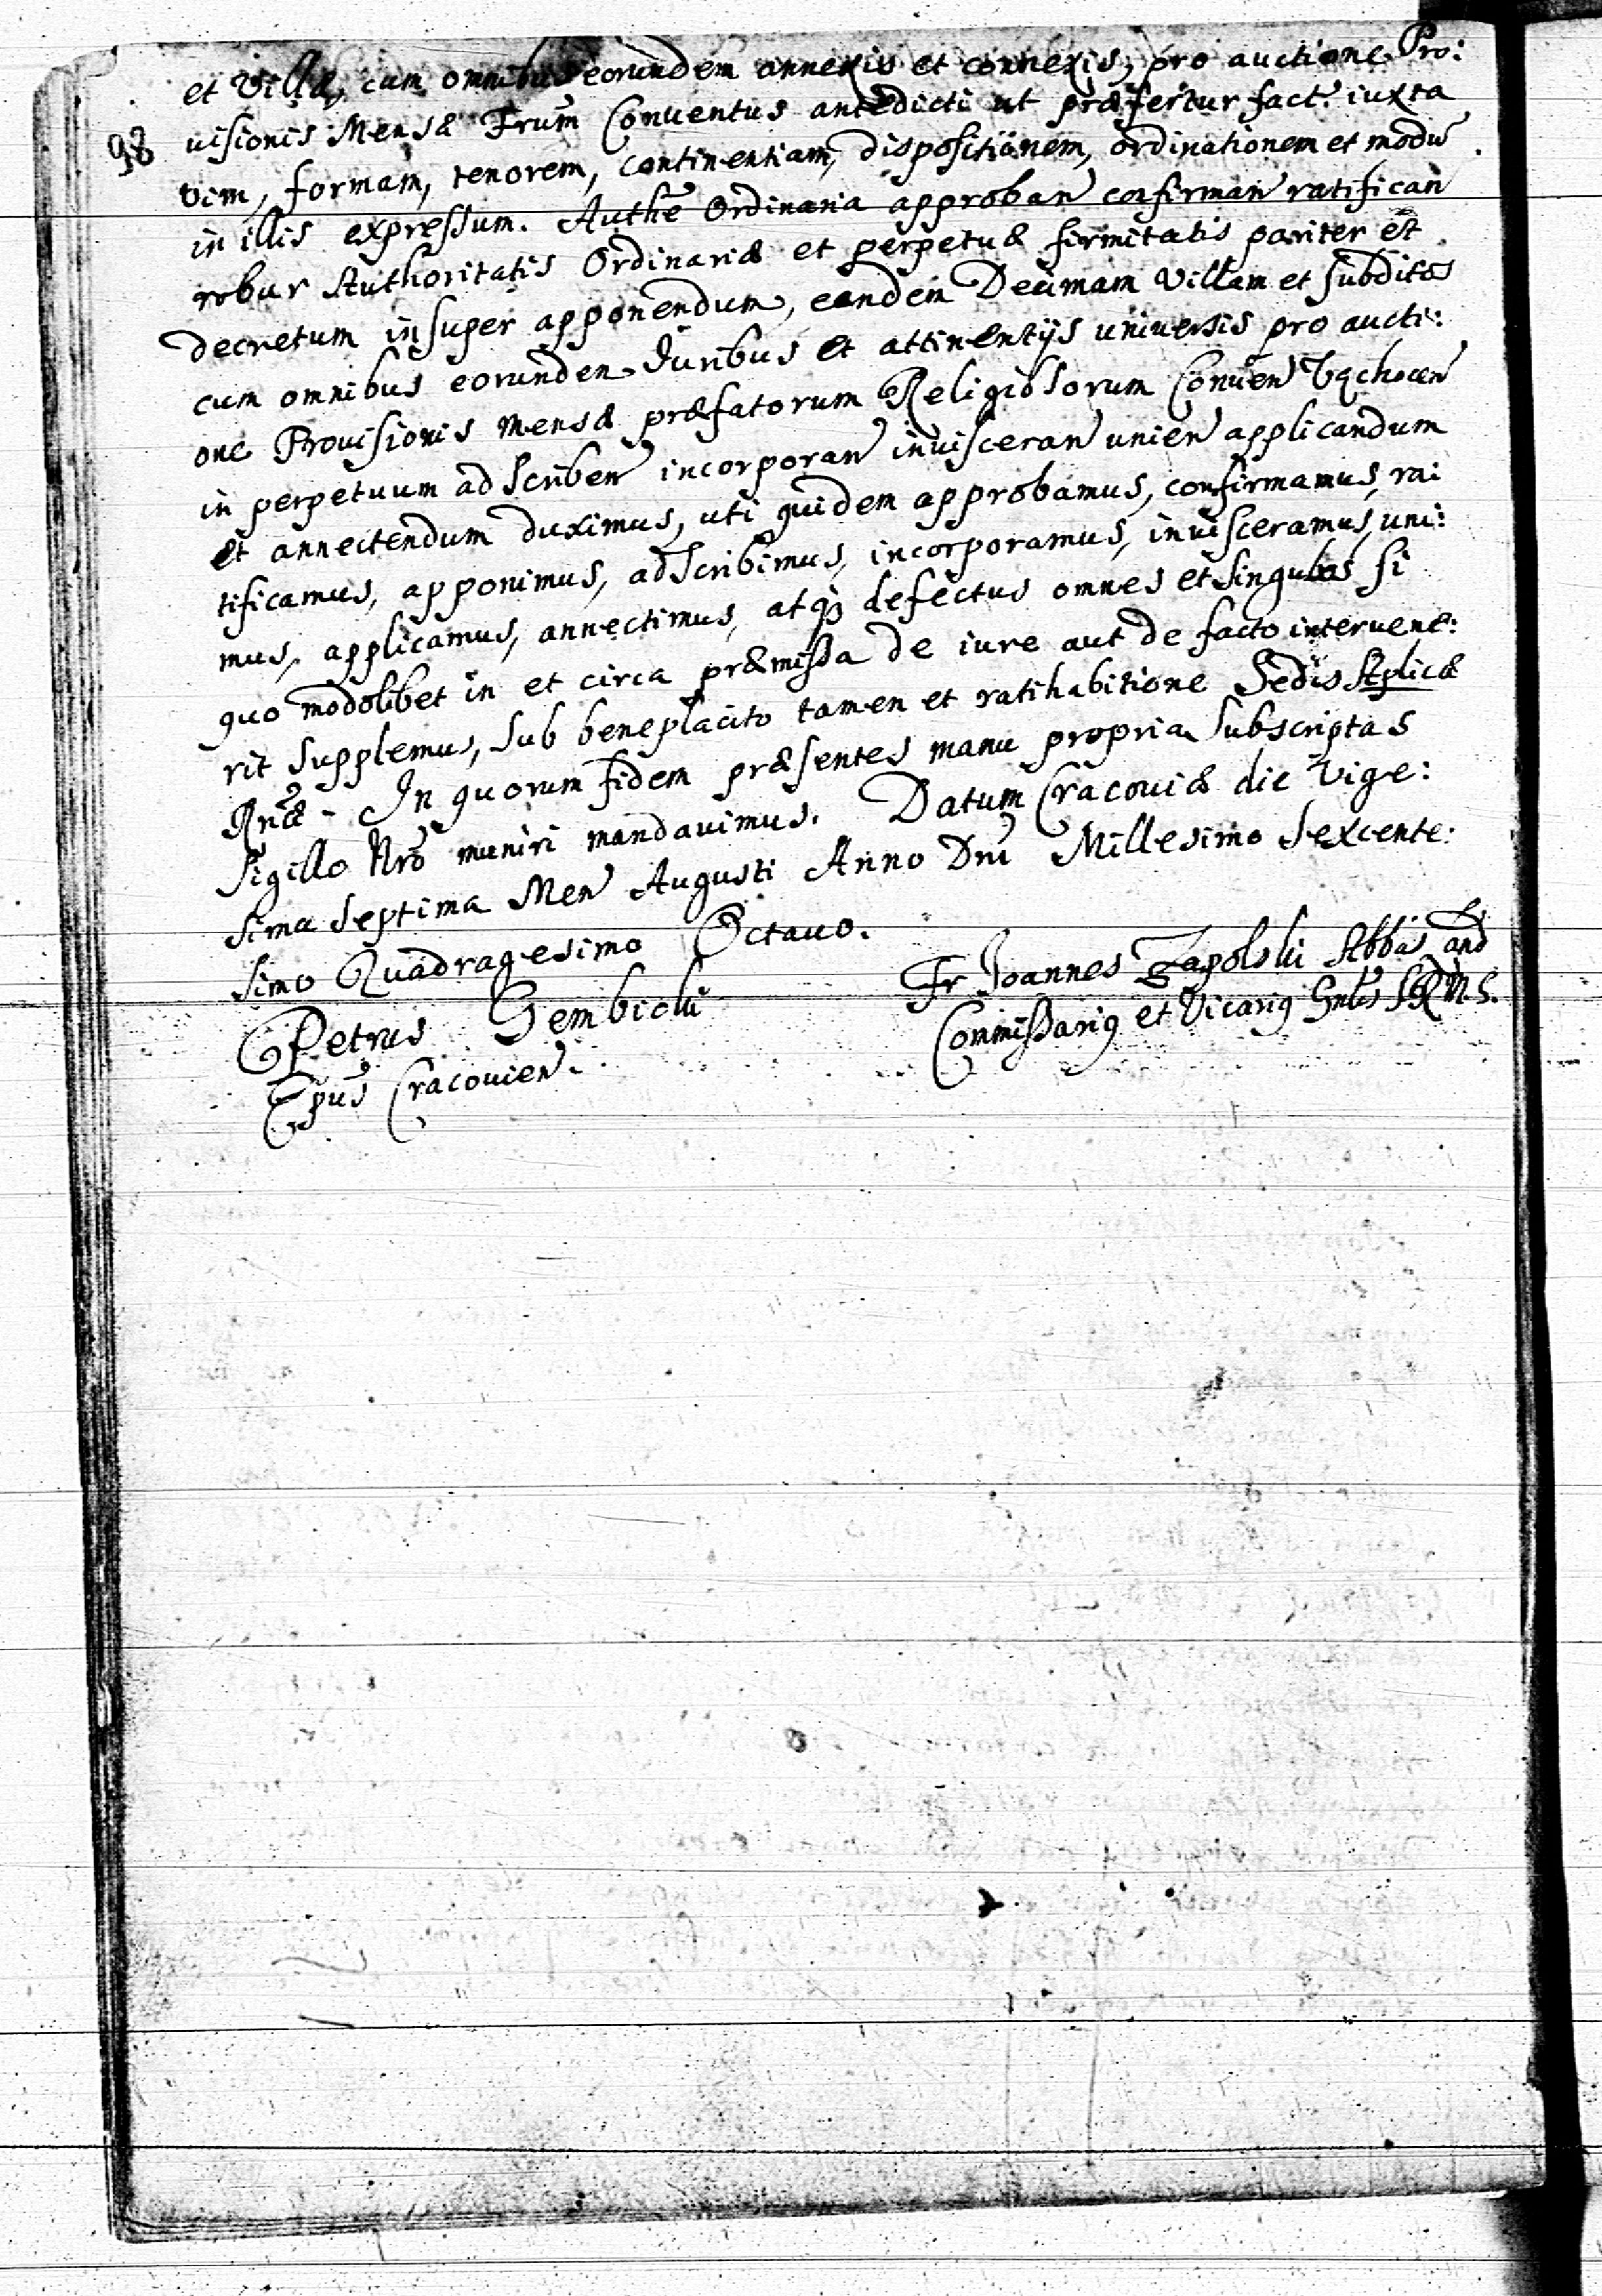 et Villæ, cum omnibus eorundem annexis et connexis, pro auctione Pro:
98
uisionis Mensæ Frum Conuentus antedicti ut præfertur fact. iuxta
vim, formam, tenorem, continentiam, dispositionem, ordinationem et modū
in illis expressum. Authē Ordinaria approban confirman ratifican
robur Authoritatis Ordinariæ et perpetuæ firmitatis pariter et
decretum insuper apponendum, eandem Decimam Villam et subditos
cum omnibus eorundem Juribus et attinentijs uniuersis pro aucti:
one Prouisionis mensæ præfatorum Religiosorum Conuen Vąchocen
in perpetuum adscriben incorporan inuisceran unien applicandum
et annectendum duximus, uti quidem approbamus, confirmamus, ra:
tificamus, apponimus, adscribimus, incorporamus, inuisceramus, uni:
mus, applicamus, annectimus, atq3 defectus omnes et singulos si
quo modolibet in et circa præmissa de iure aut de facto interuene:
rit supplemus, sub beneplacito tamen et ratihabitione Sedis Aplicæ
Rnæ - In quorum fidem præsentes manu propria subscriptas
sigillo Nrō muniri mandauimus. Datum Cracouiæ die Vige:
sima septima Men Augusti Anno Dni Millesimo Sexcente:
simo Quadragesimo Octauo.
Petrus Gembicki
Epus Cracouien.
Fr Joannes Zapolski Abbas And
Commissarig et Vicarig Gnlis